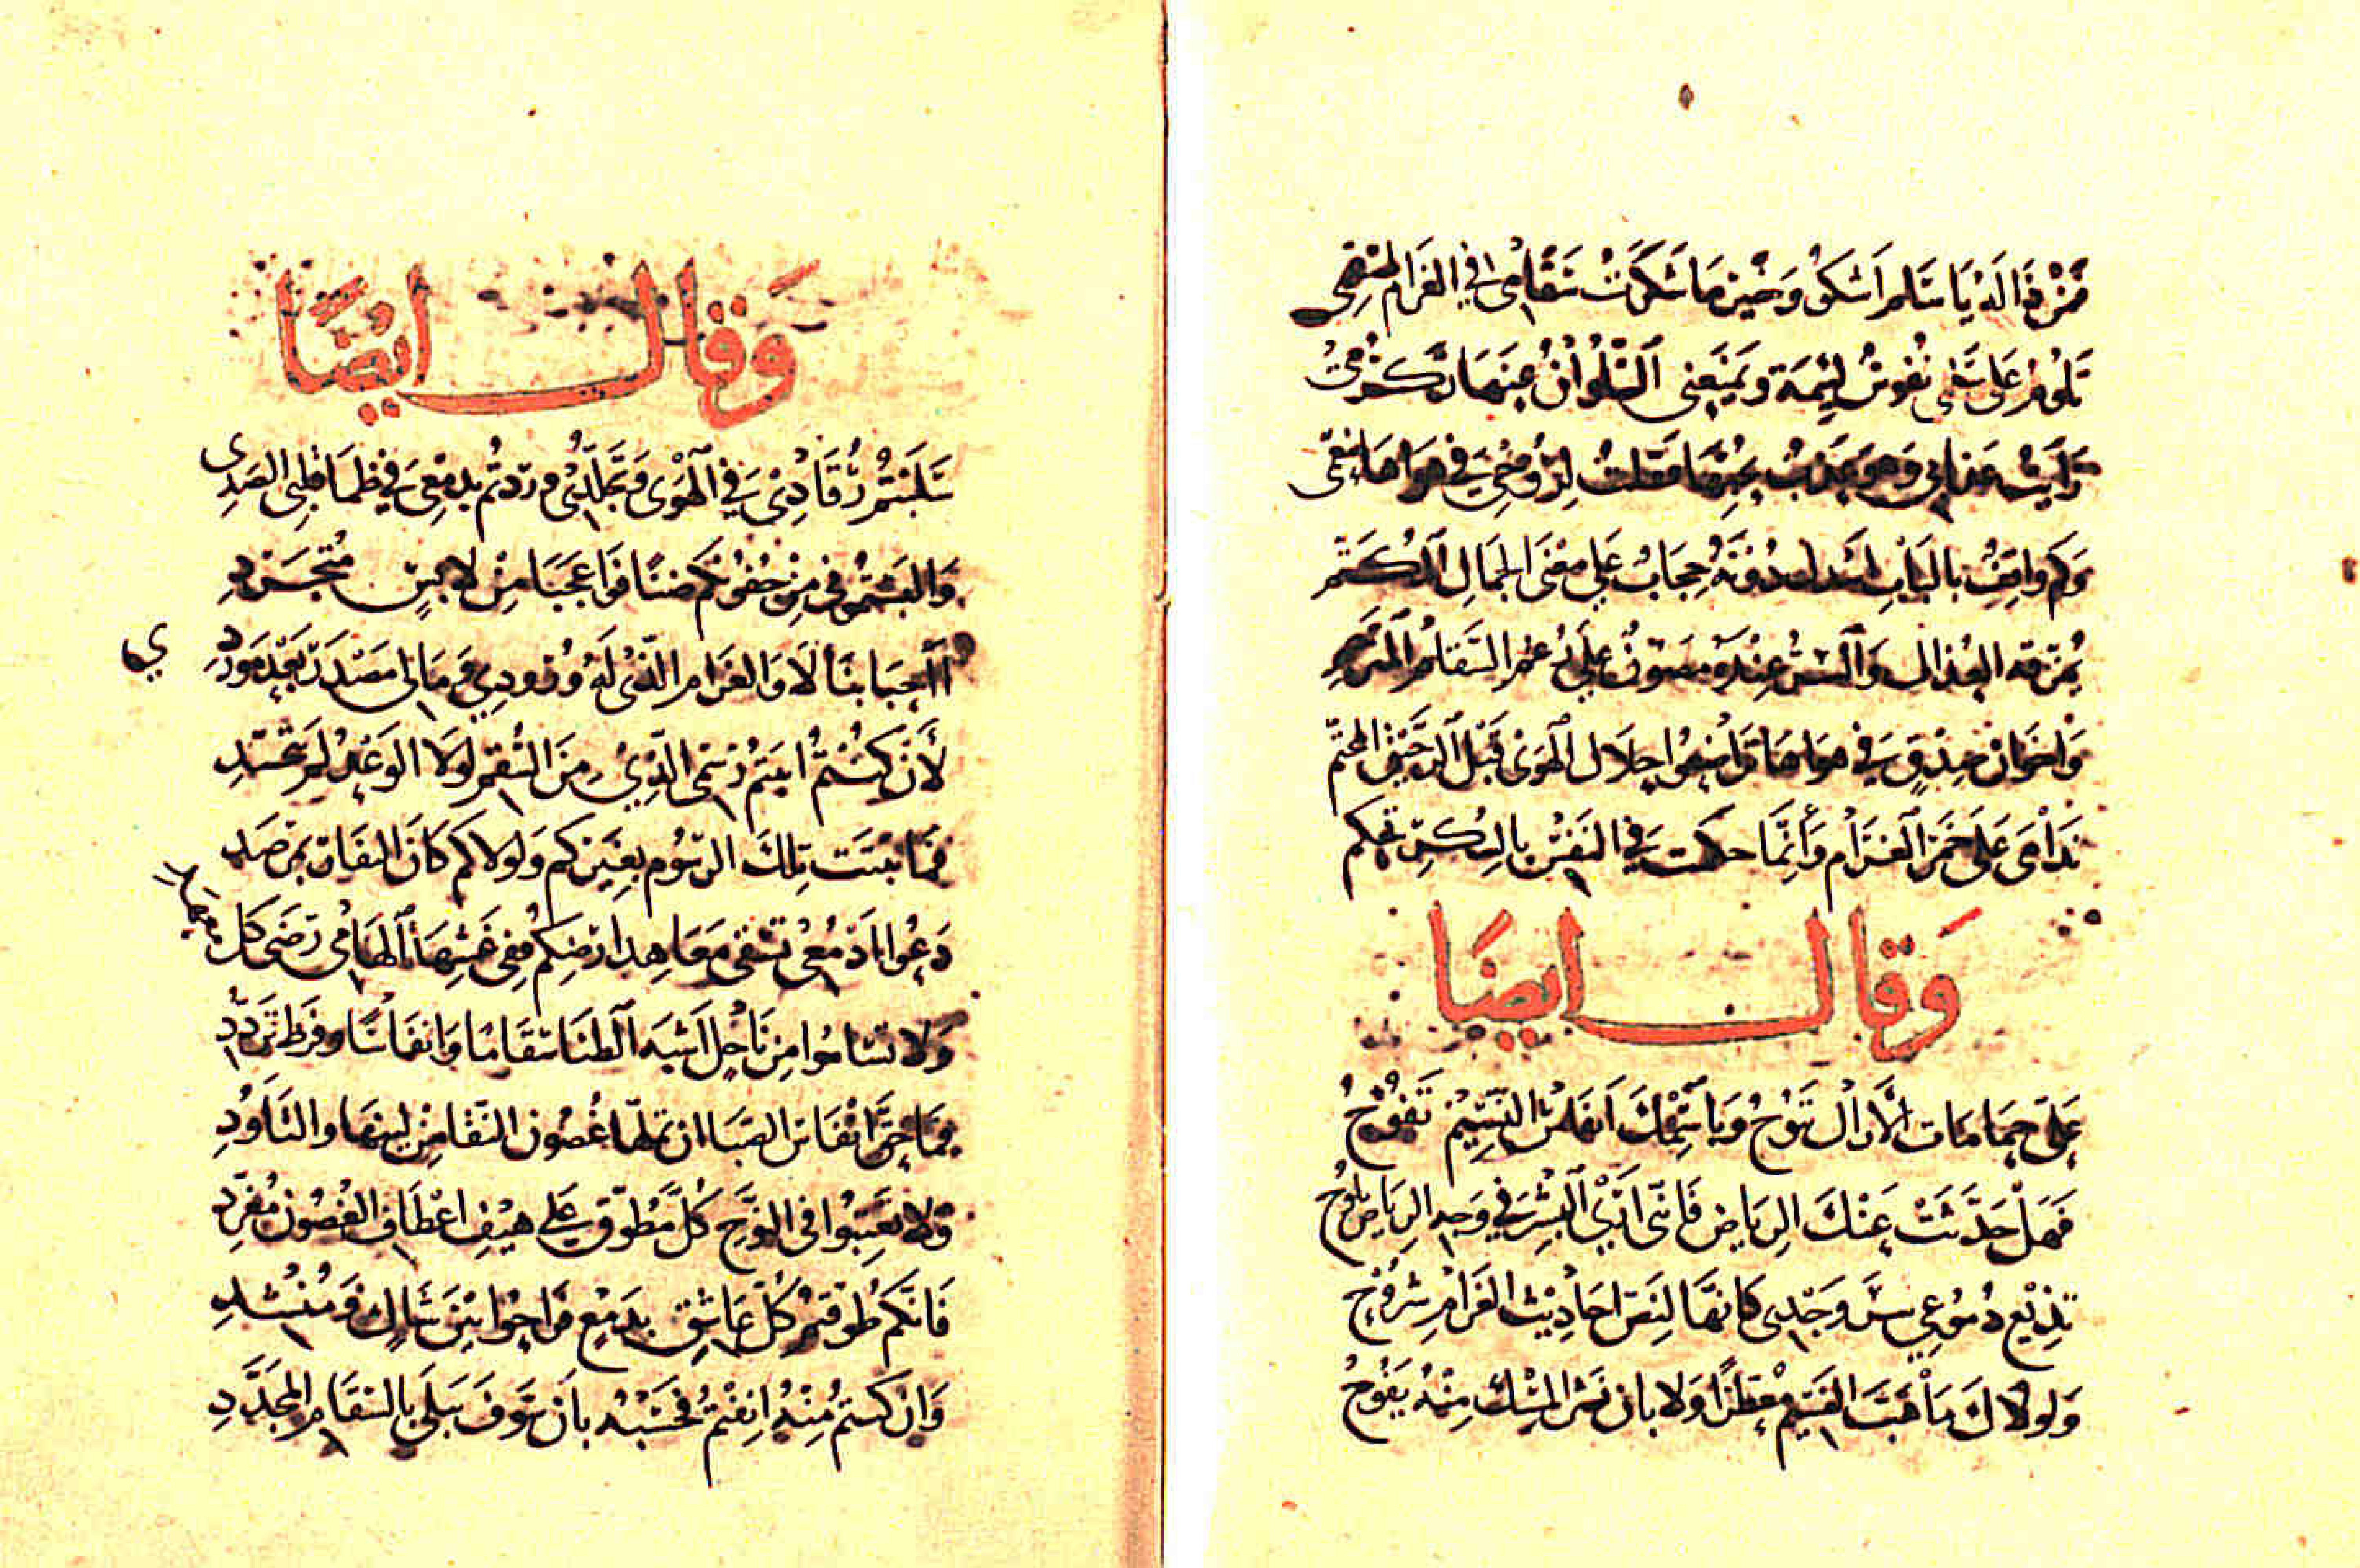 فَمَنْ ذَا لَهُ يَا سَالم اَشكو وَحَين مَا شَكَرتُ سَقَامى فى الغَرام
تَلُومُ عَلى نفوسٌ لئيمَة ويَمنَعنى السُّلوانُ عنهَا تكرمى
رَأيتُ عَذابى وَهو عَذبٌ بِحُبّهَا فقلتُ لِرُوحِى فى هَواهَا
وَكم واقفٍ بالبَابِ دُونَهُ حِجَابٌ عَلى مَعنَى الجَمالِ المُكَتّم
العُذال وَالستر عِندَهُ مصونٌ على رُغم السّقام
وَاخوان صِدقٍ فى هواهَا جلال الهَوى قَبل الرَّحِيق المختّم
نَدَامى عَلى خَمر الغَرَام وَأنّمَا حكَت فى النَفسْ بالسُكرِ تحكم
وَقال ايضًا
عَلىَ حمَامَات الأراك تَنوْحُ وَباسْمكَ اَنفاسُ النَسيْم تَفُوْحُ
فَهَلْ حَدّثَتْ عَنْكَ الرياض فَاننى اَرَىْ البِشر فى وَجهِ الرياض يلوْحُ
تذيْع دُموُعى سرَّ وَجدى كَانهَا لِنَص احَاديْث الغَرَامِ شروْحُ
وَلولاكَ مَا هَبَّ النَسيْم مُعَطرًا وَلا بان نَشر المِسْك مِنْهُ يَفُوْحُ
وَقال ايضًا
سَلَبتمْ رُقَادِىْ فى الهَوى وَتجَلّدى وَرَدتُم بدمْعى فى ظمَا قلبى الصَدِى
وَالبَستموُنى مِنْ جفوْنكم ضنًا فوَا عجَبَا مِنْ لابسٍ مُتجَرّدِ
اَاَحبَابنَا لَا وَالغَرَام الّذىْ لَهُ وُرُودِى وَمَا لى مَصْدَرٌ بَعْدَ مَورد
لأن كنتُم ابقيتُم رَمقى الّذِىْ مِنَ السُقم لولَا الوَعْدُ لم
فمَا بقيَت تلكَ الرسُوم بغَيركم وَلولاكم كَانَ الفَنا بمرصَد
دَعُوا اَدْمُعى تسْقى مَعَاهد ارْضكم فَفى غَيثهَا الهَامى رَضَى كل
وَلا تسامُوا مِن نَاحِلٍ اَشبَه الظبَا سَقَامًا وَانفَاسًا وفرَط تَرَدُّدِ
فمَا حَقّ انْفَاس الصَبَا ان تملّهَا غُصُون النّقَا مِنْ لينهَا والتَاَوُّدِ
وَلا تعَتِبُوا فى النوَّحِ كُلَّ مُطوّقٍ عَلى هيْفِ اعْطَافِ الغُصُون مُغَرِّدِ
فَانكَم طُوقتمُ كُلّ عَاشِقٍ بدَمْعٍ فرَاحُوا بَيْنَ شَاكٍ وَمُنشدِ
وَان كنتمُ مِنْهُ انِفْتُمْ فحَسْبُهُ بأن سَوفَ يَبلَى بالسَقَام المجَدَّدِ